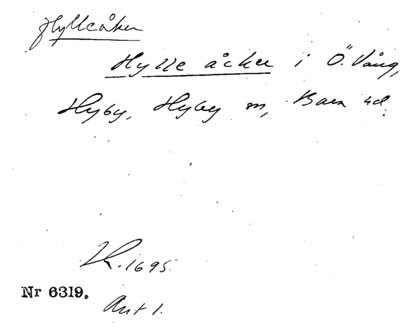 Hyllåker
Hylle åcker i Ö. Vång,
Hyby, Hyby sn, Bara hd.
LR. 1695.
Nr 6319.
Ant 1.